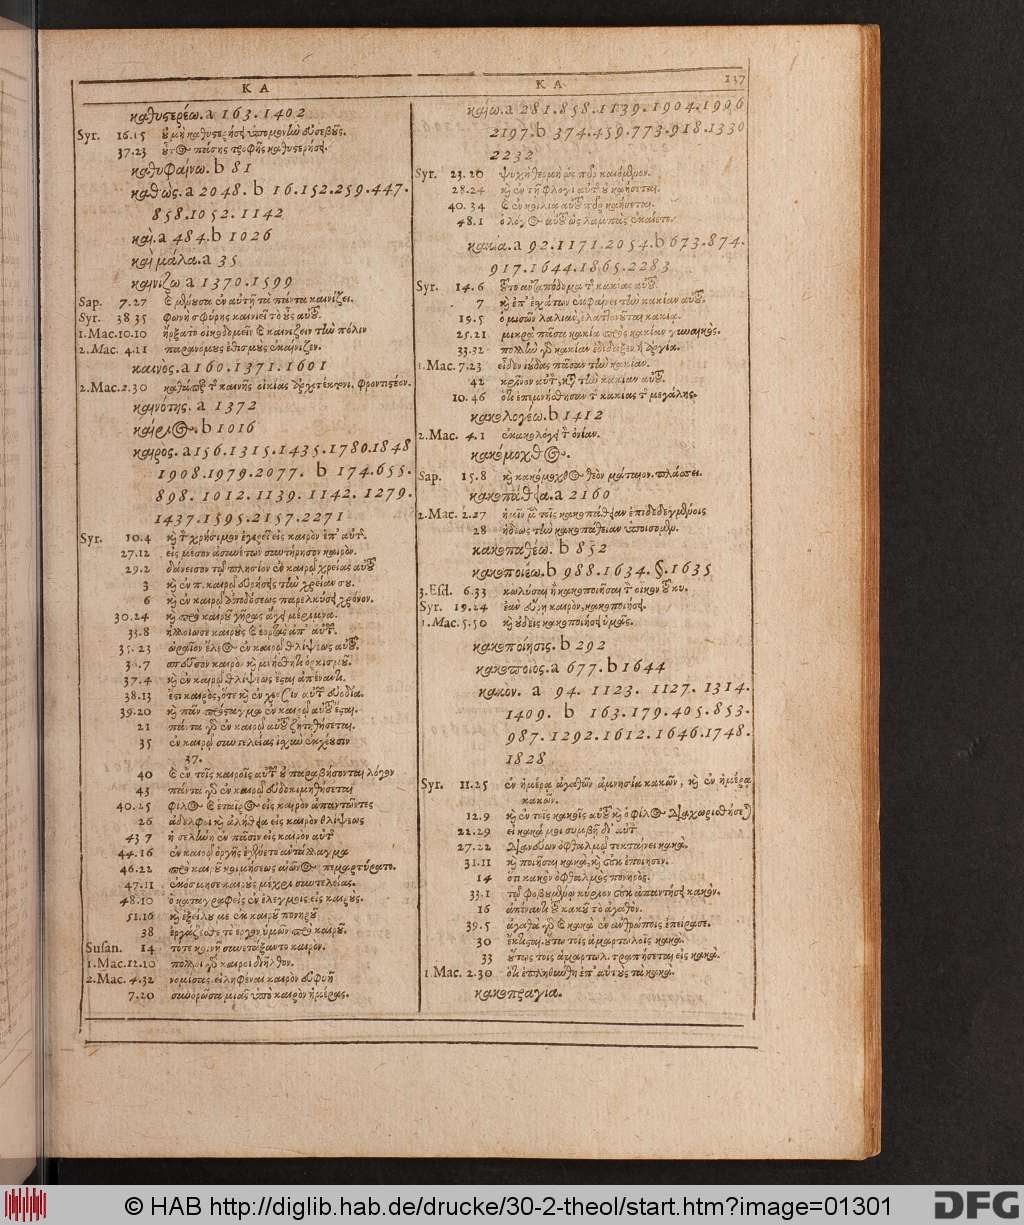 K A
K A
137
καθυστερέω.a 163.1402
Syr. 16.15 οὐ μὴ καθυστερήσῃ ὑπομονὴ εὐσεβοῦς.
37.23 οὗτος πάσης τροφῆς καθυστερήσῃ.
καθυφαίνω.b 81
καθώς.a 2048. b 16.152.259.447.
858.1052.1142
καὶ.a 484.b 1026
καὶ μάλα.a 35
καινίζω a 1370.1599
Sap. 7.27 καὶ μένουσα ἐν αὑτῇ τὰ πάντα καινίζει.
Syr. 38 35 φωνὴ σφύρης καινιεῖ τὸ οὖς αὐτοῦ.
1.Mac.10.10 ἤρξατο οἰκοδομεῖν καὶ καινίζειν τὴν πόλιν
2.Mac. 4.11 παρανόμους ἐθισμοὺς ἐκαίνιζεν.
καινος.a 160.1371.1601
2.Mac.2.30 καθάπερ τῆς καινῆς οἰκίας ἀρχιτέκτονι, φροντιστέον.
καινότης. a 1372
καίριος.b 1016
καιρος.a 156.1315.1435.1780.1848
1908.1979.2077. b 174.655.
898. 1012.1139. 1142. 1279.
1437.1595.2157.2271
Syr. 10.4 καὶ τὸν χρήσιμον ἐγερεῖ εἰς καιρὸν ἐπ' αὐτῆς.
27.12 εἰς μέσον ἀσυνέτων συντήρησον καιρόν.
29.2 δάνεισον τῷ πλησίον ἐν καιρῷ χρείας αὐτοῦ
3 καὶ ἐν π. καιρῷ εὑρήσεις τὴν χρείαν σου.
6 καὶ ἐν καιρῷ ἀποδόσεως παρελκύσει χρόνον.
30.24 καὶ πρὸ καιροῦ γῆρας ἄγει μέριμνα.
33.8 ἠλλοίωσε καιροὺς καὶ ἑορτὰς ἀπ' αὐτῶν.
35.23 ὡραῖον ἔλεος ἐν καιρῷ θλίψεως αὐτοῦ.
37.4 καὶ ἐν καιρῷ θλίψεως ἔσται ἀπέναντι.
38.13 ἔστι καιρὸς, ὅτε καὶ ἐν χερσὶν αὐτῶν εὐοδία.
39.20 καὶ πᾶν πρόσταγμα ἐν καιρῷ αὐτοῦ ἔσται.
21 πάντα γὰρ ἐν καιρῷ αὐτοῦ ζητηθήσεται.
35 ἐν καιρῷ συντελείας ἰσχὺν ἐκχέουσιν
37.
40 καὶ ἐν τοῖς καιροῖς αὐτῶν οὐ παραβήσονται λόγον
43 πάντα γὰρ ἐν καιρῷ εὐδοκιμηθήσεται
40.25 φίλος καὶ ἑταῖρος εἰς καιρὸν ἀπαντῶντες
26 ἀδελφοὶ καὶ βοήθεια εἰς καιρὸν θλίψεως
43 7 ἡ σελήνη ἐν πᾶσιν εἰς καιρὸν αὐτῆς
44.16 ἐν καιρῷ ὀργῆς ἐγένετο ἀντάλλαγμα
46.22 πρὸ καιροῦ κοιμήσεως αἰῶνος πεμαρτύρατο.
47.11 ἐκόσμησε καιροὺς μέχρι συντελείας.
48.10 ὁ καταγραφεὶς ἐν ἐλεγμοῖς εἰς καιρούς.
51.16 καὶ ἐξείλου με ἐκ καιροῦ πονηροῦ
38 ἐργάζεσθε τὸ ἔργον ὑμῶν πρὸ καιροῦ.
Susan. 14 τότε κοινῇ συνετάξαντο καιρόν.
1.Mac.12.10 πολλοὶ γὰρ καιροὶ διῆλθον.
2.Mac. 4.32 νομίσας εἰληφέναι καιρὸν εὐφυῆ
7.20 συνορῶσα μιᾶς ὑπὸ καιρὸν ἡμέρας.
καίω.a 281.858.1139.1904.1996
2197.b 374.439.773.918.1330
2232
Syr. 23.20 ψυχὴ θερμὴ ὡς πῦρ καιόμενον.
28.24 καὶ ἐν τῇ φλογὶ αὐτοῦ οὐ καήσεται.
48.1 ὁ λόγος αὐτοῦ ὡς λαμπὰς ἐκαίετο.
κακία.a 92.1171.2054.b 673.874.
917.1644.1865.2283
Syr. 14.6 τοῦτο ἀνταπόδομα τῆς κακίας αὐτοῦ.
7 καὶ ἐπ' ἐσχάτων ἐκφαίνει τὴν κακίαν αὐτοῦ.
19.5 ὁ μισῶν λαλιὰν, ἐλαττονοῦται κακία.
25.21 μικρὰ πᾶσα κακία πρὸς κακίαν γυναικός.
33.32 πολλὴν γὰρ κακίαν ἐδίδαξεν ἡ ἀργία.
1.Mac. 7.23 εἶδεν ἰούδας πᾶσαν τὴν κακίαν.
42 κρῖνον αὐτὸν κατὰ τὴν κακίαν αὐτοῦ.
10.46 ὅτι ἐπεμνήσθησαν τῆς κακίας τῆς μεγάλης.
κακολογέω.b 1412
2.Mac. 4.1 ἐκακολόγει τὸν ὀνίαν.
κακόμοχθος.
Sap. 15.8 καὶ κακόμοχθος θεὸν μάταιον πλάσσει.
κακοπάθεια.a 2160
2.Mac. 2.27 ἡμῖν μὲν τοῖς κακοπάθειαν ἐπιδεδεγμένοις
28 ἡδέως τὴν κακοπάθειαν ὑποίσομεν.
κακοπαθέω. b 852
κακοποιέω.b 988.1634. §.1635
3.Esd. 6.33 κωλύσαι ἢ κακοποιῆσαι τὸν οἶκον τοῦ κυ.
Syr. 19.24 ἐὰν εὕρῃ καιρὸν, κακοποιήσῃ.
1.Mac. 5.50 καὶ οὐδεὶς κακοποιήσῃ ὑμᾶς.
κακοποίησις.b 292
κακοποιός.a 677.b 1644
κακόν. a 94. 1123. 1127. 1314.
1409. b 163.179.405.853.
987.1292.1612.1646.1748.
1828
Syr. 11.25 ἐν ἡμέρᾳ ἀγαθῶν ἀμνησία κακῶν, καὶ ἐν ἡμέρᾳ
κακῶν.
12.9 καὶ ἐν τοῖς κακοῖς αὐτοῦ καὶ ὁ φίλος διαχωρισθήσεται
22.29 εἰ κακά μοι συμβῇ δι' αὐτόν
27.22 διανεύων ὀφθαλμῷ τεκταίνει κακά.
31.11 καὶ ποιῆσαι κακὰ, καὶ οὐκ ἐποίησεν.
14 ὅτι κακὸν ὀφθαλμὸς πονηρός.
33.1 τῷ φοβουμένῳ κύριον οὐκ ἀπαντήσει κακόν.
16 ἀπέναντι τοῦ κακοῦ τὸ ἀγαθόν.
39.5 ἀγαθὰ γὰρ καὶ κακὰ ἐν ἀνθρώποις ἐπείρασε.
30 ἔκτισται οὕτω τοῖς ἁμαρτωλοῖς κακά.
33 οὕτως τοῖς ἁμαρτωλ. τραπήσεται εἰς κακά.
1.Mac. 2.30 ὅτι ἐπληθύνθη ἐπ' αὐτοὺς τὰ κακά.
κακοπραγία.
© HAB http://diglib.hab.de/drucke/30-2-theol/start.htm?image=01301
DFG